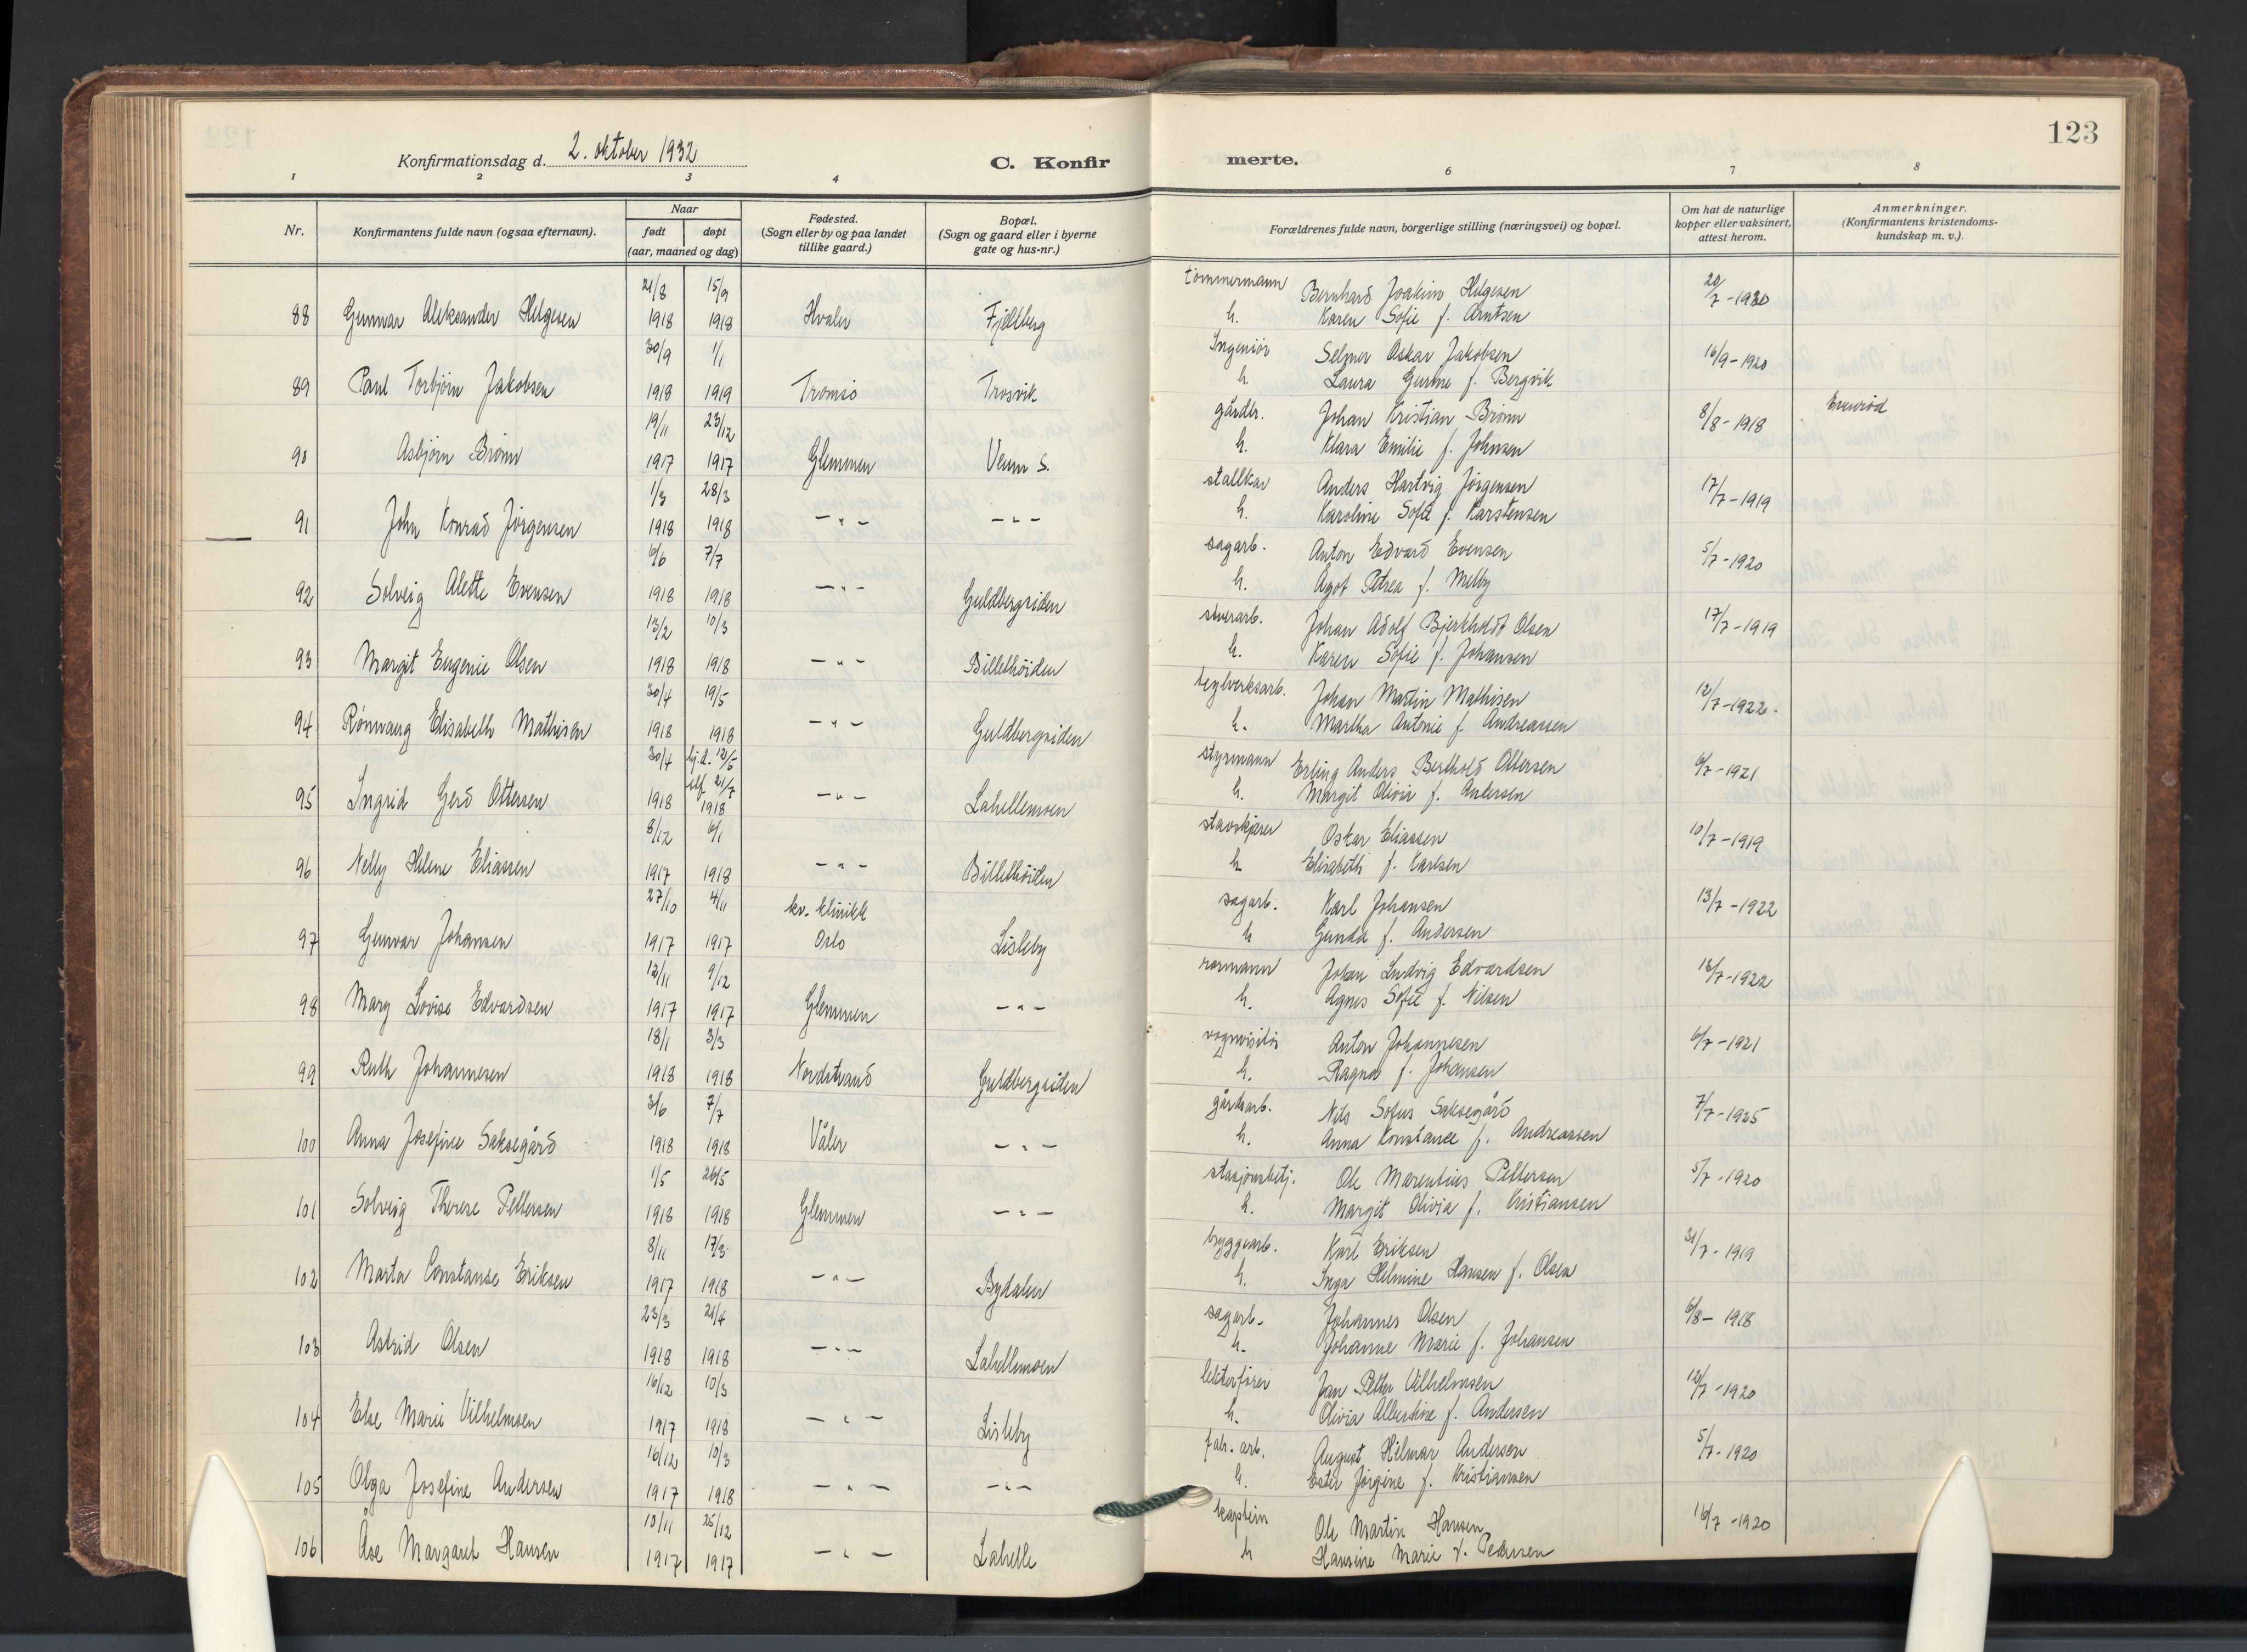 123
Konfirmationsdag d. 2. oktober 1932
C. Konfirmerte.
1 2 3 4 6 7 8
Nr.
Konfirmantens fulde navn (ogsaa efternavn).
Naar
født døpt
(aar, maaned og dag)
Fødested.
(Sogn eller by og paa landet
tillike gaard.)
Bopæl.
(Sogn og gaard eller i byerne
gate og hus-nr.)
Forældrenes fulde navn, borgerlige stilling (næringsvei) og bopæl.
Om hat de naturlige
kopper eller vaksinert,
attest herom.
Anmerkninger.
(Konfirmantens kristendoms-
kundskap m. v.).
21/8 15/9 tømmermann Bernhard Joakim Helgesen 20/7-1920
88 Gunnar Aleksander Helgesen 1918 1918 Hvaler Fjellberg h. Karen Sofie f. Arntsen
30/9 1/1 Ingeniør Selmer Oskar Jakobsen 16/9-1920
89 Paul Torbjørn Jakobsen 1918 1919 Tromsø Trosvik h. Laura f. Bergvik
19/11 23/12 gårdbr. Johan Kristian Brønn 8/8-1918 Evenrød
90 Asbjørn Brønn 1917 1917 Glemmen Veum S. h. Klara Emilie f. Johnsen
1/3 28/3 stallkar Anders Hartvig Jørgensen 17/7-1919
91 John Konrad Jørgensen 1918 1918 -"- -"- h. Karoline Sofie f. Karstensen
6/6 7/7 sagarb. Anton Edvard Evensen 5/7-1920
92 Solveig Alette Evensen 1918 1918 -"- Guldbergsiden h. Ågot Petrea f. Melby
13/2 10/3 stuerarb. Johan Adolf Bjerkholdt Olsen 17/7-1919
93 Margit Eugenie Olsen 1918 1918 -"- Billethöiden h. Karen Sofie f. Johansen
30/4 19/5 teglverksarb. Johan Martin Mathisen 12/7-1922.
94 Rønnaug Elisabeth Mathisen 1918 1918 -"- Guldbergsiden h. Martha Antonie f. Andreassen
30/4 hj.d. 12/5 styrmann Erling Anders Berthold Ottersen 6/7-1921
stf. 21/7
95 Ingrid Gerd Ottersen 1918 1918 -"- Lahellemoen h. Margit Olivie f. Andersen
8/12 6/1 stavskjærer Oskar Eliassen 10/7-1919
96 Nelly Helene Eliassen 1917 1918 -"- Billethöiden h Elisabeth f. Karlsen
27/10 4/11 kv. klinikk sagarb. Karl Johansen 13/7-1922
97 Gunvar Johansen 1917 1917 Oslo Lisleby h Gunda f. Andersen
12/11 9/12 rormann Johan Ludvig Edvardsen 13/7-1922
98 Mary Lovise Edvardsen 1917 1917 Glemmen -"- h. Agnes Sofie f. Nilsen
18/1 3/3 vognvisitør Anton Johannesen 6/7-1921
99 Ruth Johannesen 1918 1918 Nordstrand Guldbergsiden h. Ragna f. Johansen
3/6 7/7 gårdsarb. Nils Sofus Saksegård 7/7-1925
100 Anna Josefine Saksegård 1918 1918 Våler -"- h. Anna Konstance f. Andreassen
1/5 26/5 stasjonsbetj. Ole Marentius Pettersen 5/7-1920
101 Solveig Therese Pettersen 1918 1918 Glemmen -"- h. Margit Olivia f. Kristiansen
8/11 17/3 bryggearb. Karl Eriksen 31/7-1919
102 Marta Constanse Eriksen 1917 1918 -"- Bydalen h. Inga Helmine Hansen f. Olsen
23/3 21/4 sagarb. Johannes Olsen 6/8-1918
103 Astrid Olsen 1918 1918 -"- Lahellemoen h. Johanne Marie f. Johansen
16/12 10/3 lekterfører Jan Petter Vilhelmsen 12/7-1920
104 Else Marie Vilhelmsen 1917 1918 -"- Lisleby h. Olivia Albertine f. Andersen
16/12 10/3 fabr. arb. August Hilmar Andersen 5/7-1920
105 Olga Josefine Andersen 1917 1918 -"- -"- h. Ester Jørgine f. Kristiansen
10/11 25/12 kaptein Ole Martin Hansen 16/7-1920
106 Åse Margaret Hansen 1917 1917 -"- Lahelle h Hansine Marie f. Pedersen